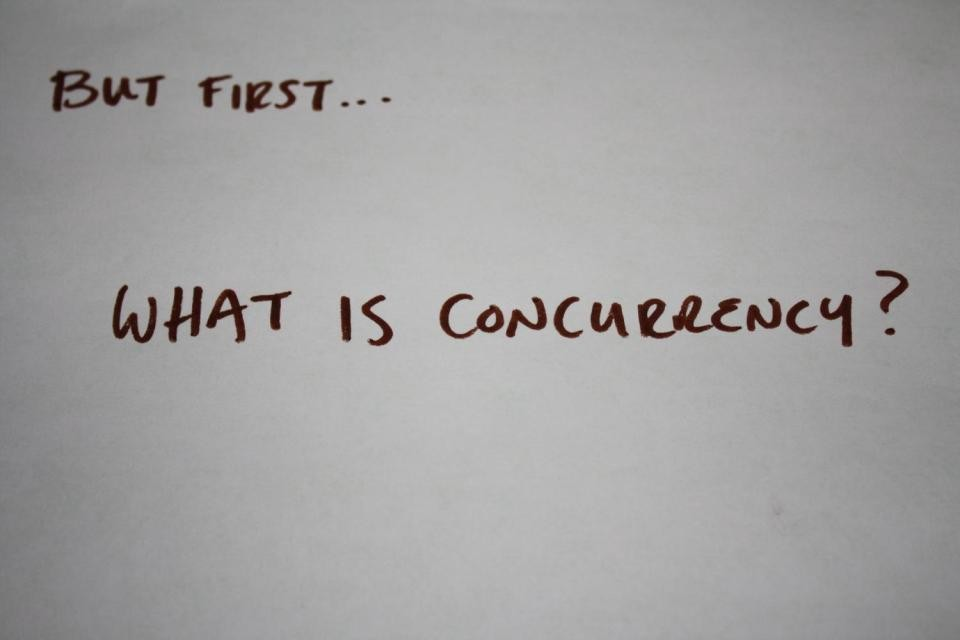 BUT FIRST...
WHAT IS CONCURRENCY?